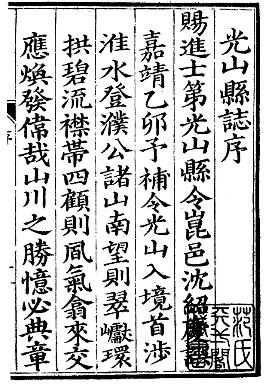 光山縣誌序
賜進士第光山縣令崑邑沈紹
嘉靖乙卯予補令光山入境首涉
淮水登濮公諸山南望則翠巘環
拱碧流襟帶四顧則風氣翕來交
應煥發偉哉山川之勝憶必典章
序
范氏
天一閣